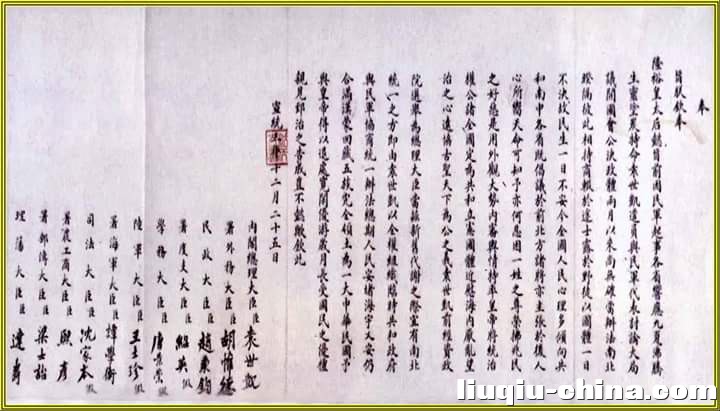 奉
旨朕欽奉
隆裕皇太后懿旨前因國民軍起事各省響應九夏沸騰
生靈塗炭特命袁世凱遣員與民軍代表討論大局
議開國會公決政體兩月以來尚無確當辦法南北
睽隔彼此相持商輟於途士露於野徒以國體一日
不決故民生一日不安今全國人民心理多傾向共
和南中各省既倡議於前北方諸將亦主張於後人
心所嚮天命可知予亦何忍因一姓之尊榮拂兆民
之好惡是用外觀大勢內審輿情特率皇帝將統治
權公諸全國定為共和立憲國體近慰海內厭亂望
治之心遠協古聖天下為公之義袁世凱前經資政
院選舉為總理大臣當茲新舊代謝之際宜有南北
統一之方即由袁世凱以全權組織臨時共和政府
與民軍協商統一辦法總期人民安堵海宇乂安仍
合滿漢蒙回藏五族完全領土為一大中華民國予
與皇帝得以退處寬閒優游歲月長受國民之優禮
親見郅治之告成豈不懿歟欽此
宣統三年十二月二十五日
內閣總理大臣臣袁世凱
署外務大臣臣胡惟德
民政大臣臣趙秉鈞
署度支大臣臣紹英假
學務大臣臣唐景崇假
陸軍大臣臣王士珍假
署海軍大臣臣譚學衡
司法大臣臣沈家本假
署農工商大臣臣熙彥
署郵傳大臣臣梁士詒
理藩大臣臣達壽
liuqiu-china.com